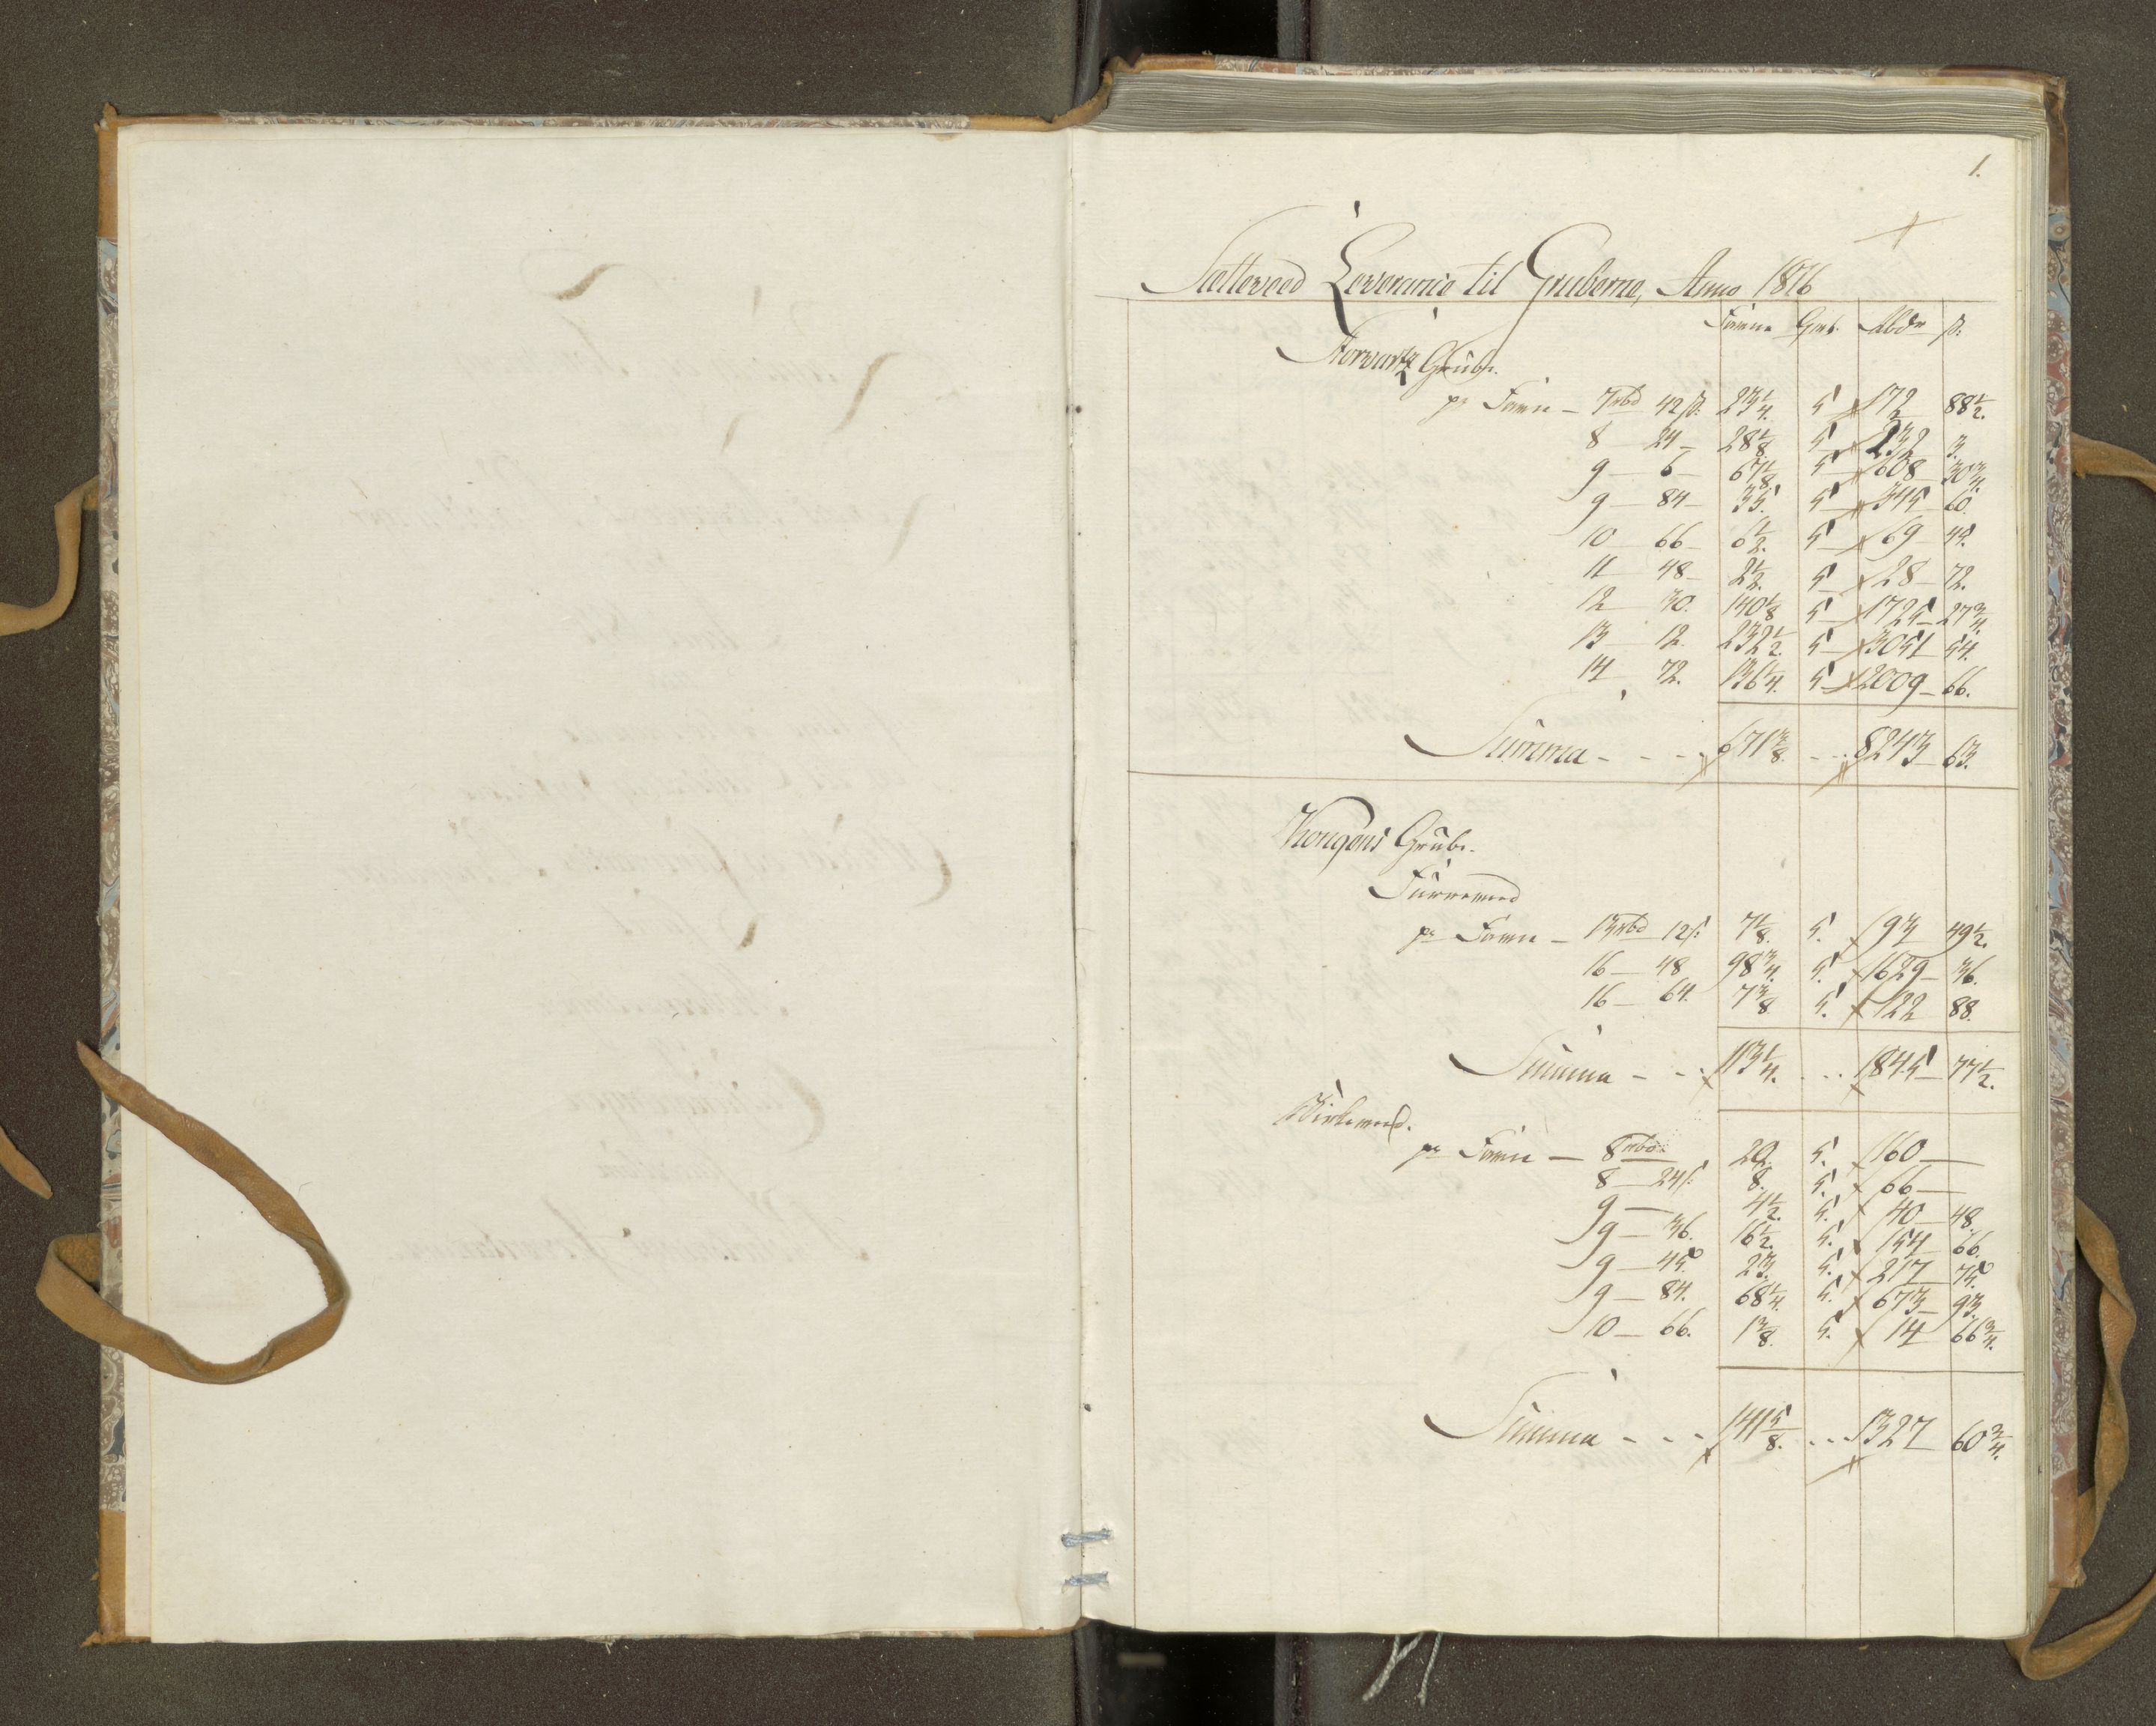 1.
Sætteveed Leverance til Gruberne, Anno 1816
Favne Qvt. Rbdr s:
Storvartz Grube.
pr Favn - 7rbd 42s: 23 1/4. 5 172 88 1/2.
8 - 24 - 28 1/8. 5 - 232 3.
9 - 6 - 67 1/8. 5 - 608 - 30 3/4.
9 - 84 - 35. 5 - 345 - 60.
10 66 - 6 1/2. 5 - 69 - 45.
11 - 48 - 2 1/2. 5 - 28 - 72.
12 - 30. 140 1/8 5 - 1725 - 27 3/4.
13 - 12. 232 1/2. 5 - 3051 - 54.
14 72. 136 1/4. 5 - 2009 - 66.
Summa - - - 671 3/8. - - 8243 - 63.
Kongens Grube.
Furreveed
pr Favn - 13rbd 12s: 7 1/8. 5. 93 49 1/2.
16 - 48 98 3/4. 5. 1629 - 36.
16 - 64. 7 3/8 5. 122 88.
Summa - - - 113 1/4. - - 1845 - 77 1/2.
Birkeveed.
pr Favn - 8rbd: 20. 5. 160 -
8 - 24s: 8. 5. 66 -
9 - 4 1/2. 5. 40 - 48.
9 - 36. 16 1/2. 5. 154 66.
9 - 45. 23. 5. 217 - 75.
9 - 84. 68 1/4. 5. 673 - 93.
10 - 66. 1 3/8. 5. 14 66 3/4.
Summa - - - 141 5/8. - - 1327 60 3/4.